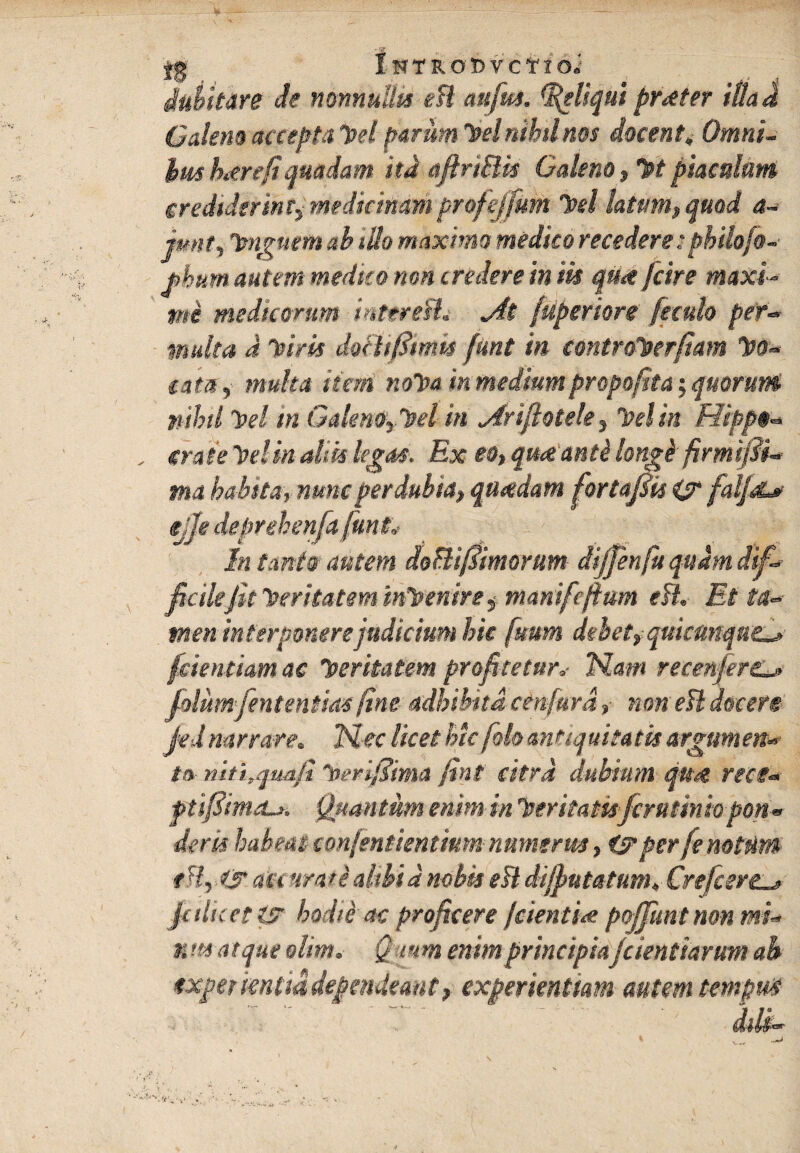 18 INTRODVCTIO.
dubitare de nonnullis est ausus. Reliqui præter illa à
Galeno accepta vel parùm vel nihil nos docent. Omni-
bus hæresi quadam ità astrictis Galeno, vt piaculum
crediderint, medicinam professum vel latum, quod a-
junt, vnguem ab illo maximo medico recedere: philoso-
phum autem medico non credere in iis quæ scire maxi-
mè medicorum interest. At superiore seculo per-
multa à viris doctissimis sunt in controversiam vo-
cata, multa item nova in medium proposita; quorum
nihil vel in Galeno, vel in Aristotele, vel in Hippo-
crate vel in aliis legas. Ex eo, quæ antè longè firmissi-
ma habita, nunc perdubia, quædam fortassis & falsa
esse deprehensa sunt.
In tanto autem doctissimorum dissensu quàm dif-
ficile sit veritatem invenire, manifestum est. Et ta-
men interponere judicium hic suum debet, quicunque
scientiam ac veritatem profitetur. Nam recensere
solùm sententias sine adhibitâ censurâ, non est docere
sed narrare. Nec licet hîc solo antiquitatis argumen-
to niti, quasi verissima sint citrà dubium quæ rece-
ptissima. Quantùm enim in veritatis scrutinio pon-
deris habeat consentientium numerus, & per se notum
est, & accuratè alibi à nobis est disputatum. Crescere
scilicet & hodiè ac proficere scientiæ possunt non mi-
nus atque olim. Quum enim principia scientiarum ab
experientiâ dependeant, experientiam autem tempus
dili-